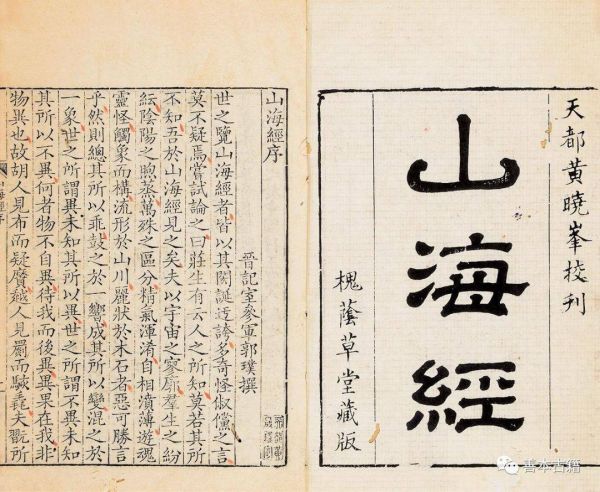 天都黃曉峯校刊
山海經
槐蔭草堂藏版
山海經序
晉記室參軍郭璞撰
世之覽山海經者皆以其閎誕迂誇多奇怪俶儻之言
莫不疑焉嘗試論之曰莊生有云人之所知莫若其所
不知吾於山海經見之矣夫以宇宙之寥廓羣生之紛
紜陰陽之煦蒸萬殊之區分精氣渾淆自相濆薄遊魂
靈怪觸象而構流形於山川麗狀於木石者惡可勝言
乎然則總其所以乖鼓之於一響成其所以變混之於
一象世之所謂異未知其所以異世之所謂不異未知
其所以不異何者物不自異待我而後異異果在我非
物異也故胡人見布而疑黂越人見罽而駭毳夫翫所
山海經序
善本古籍